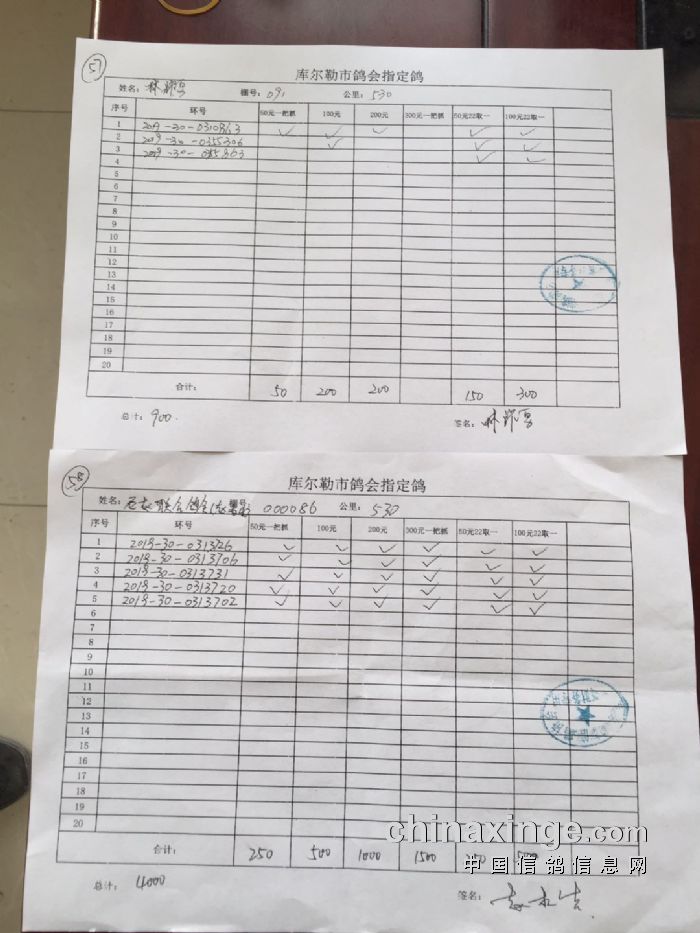 57
库尔勒市鸽会指定鸽
姓名: 棚号: 091 公里: 530
序号 环号 50元一把抓 100元 200元 300元一把抓 50元22取一 100元22取一
1 2019-30-0310863 ✓ ✓ ✓ ✓ ✓
2 2019-30-0355306 ✓ ✓ ✓
3 ✓ ✓
4
5
6
7
8
9
10
11
12
13
14
15
16
17
18
19
20
合计: 50 200 200 150 300
总计: 900.
签名:
58
库尔勒市鸽会指定鸽
姓名: 棚号: 000086 公里: 530
序号 环号 50元一把抓 100元 200元 300元一把抓 50元22取一 100元22取一
1 2018-30-0313726 ✓ ✓ ✓ ✓ ✓ ✓
2 2018-30-0313706 ✓ ✓ ✓ ✓ ✓ ✓
3 2018-30-0313731 ✓ ✓ ✓ ✓ ✓ ✓
4 2018-30-0313720 ✓ ✓ ✓ ✓ ✓ ✓
5 2018-30-0313702 ✓ ✓ ✓ ✓ ✓ ✓
6
7
8
9
10
11
12
13
14
15
16
17
18
19
20
合计: 250 500 1000 1500 250 500
总计: 4000
签名:
chinaxinge.com
中国信鸽信息网